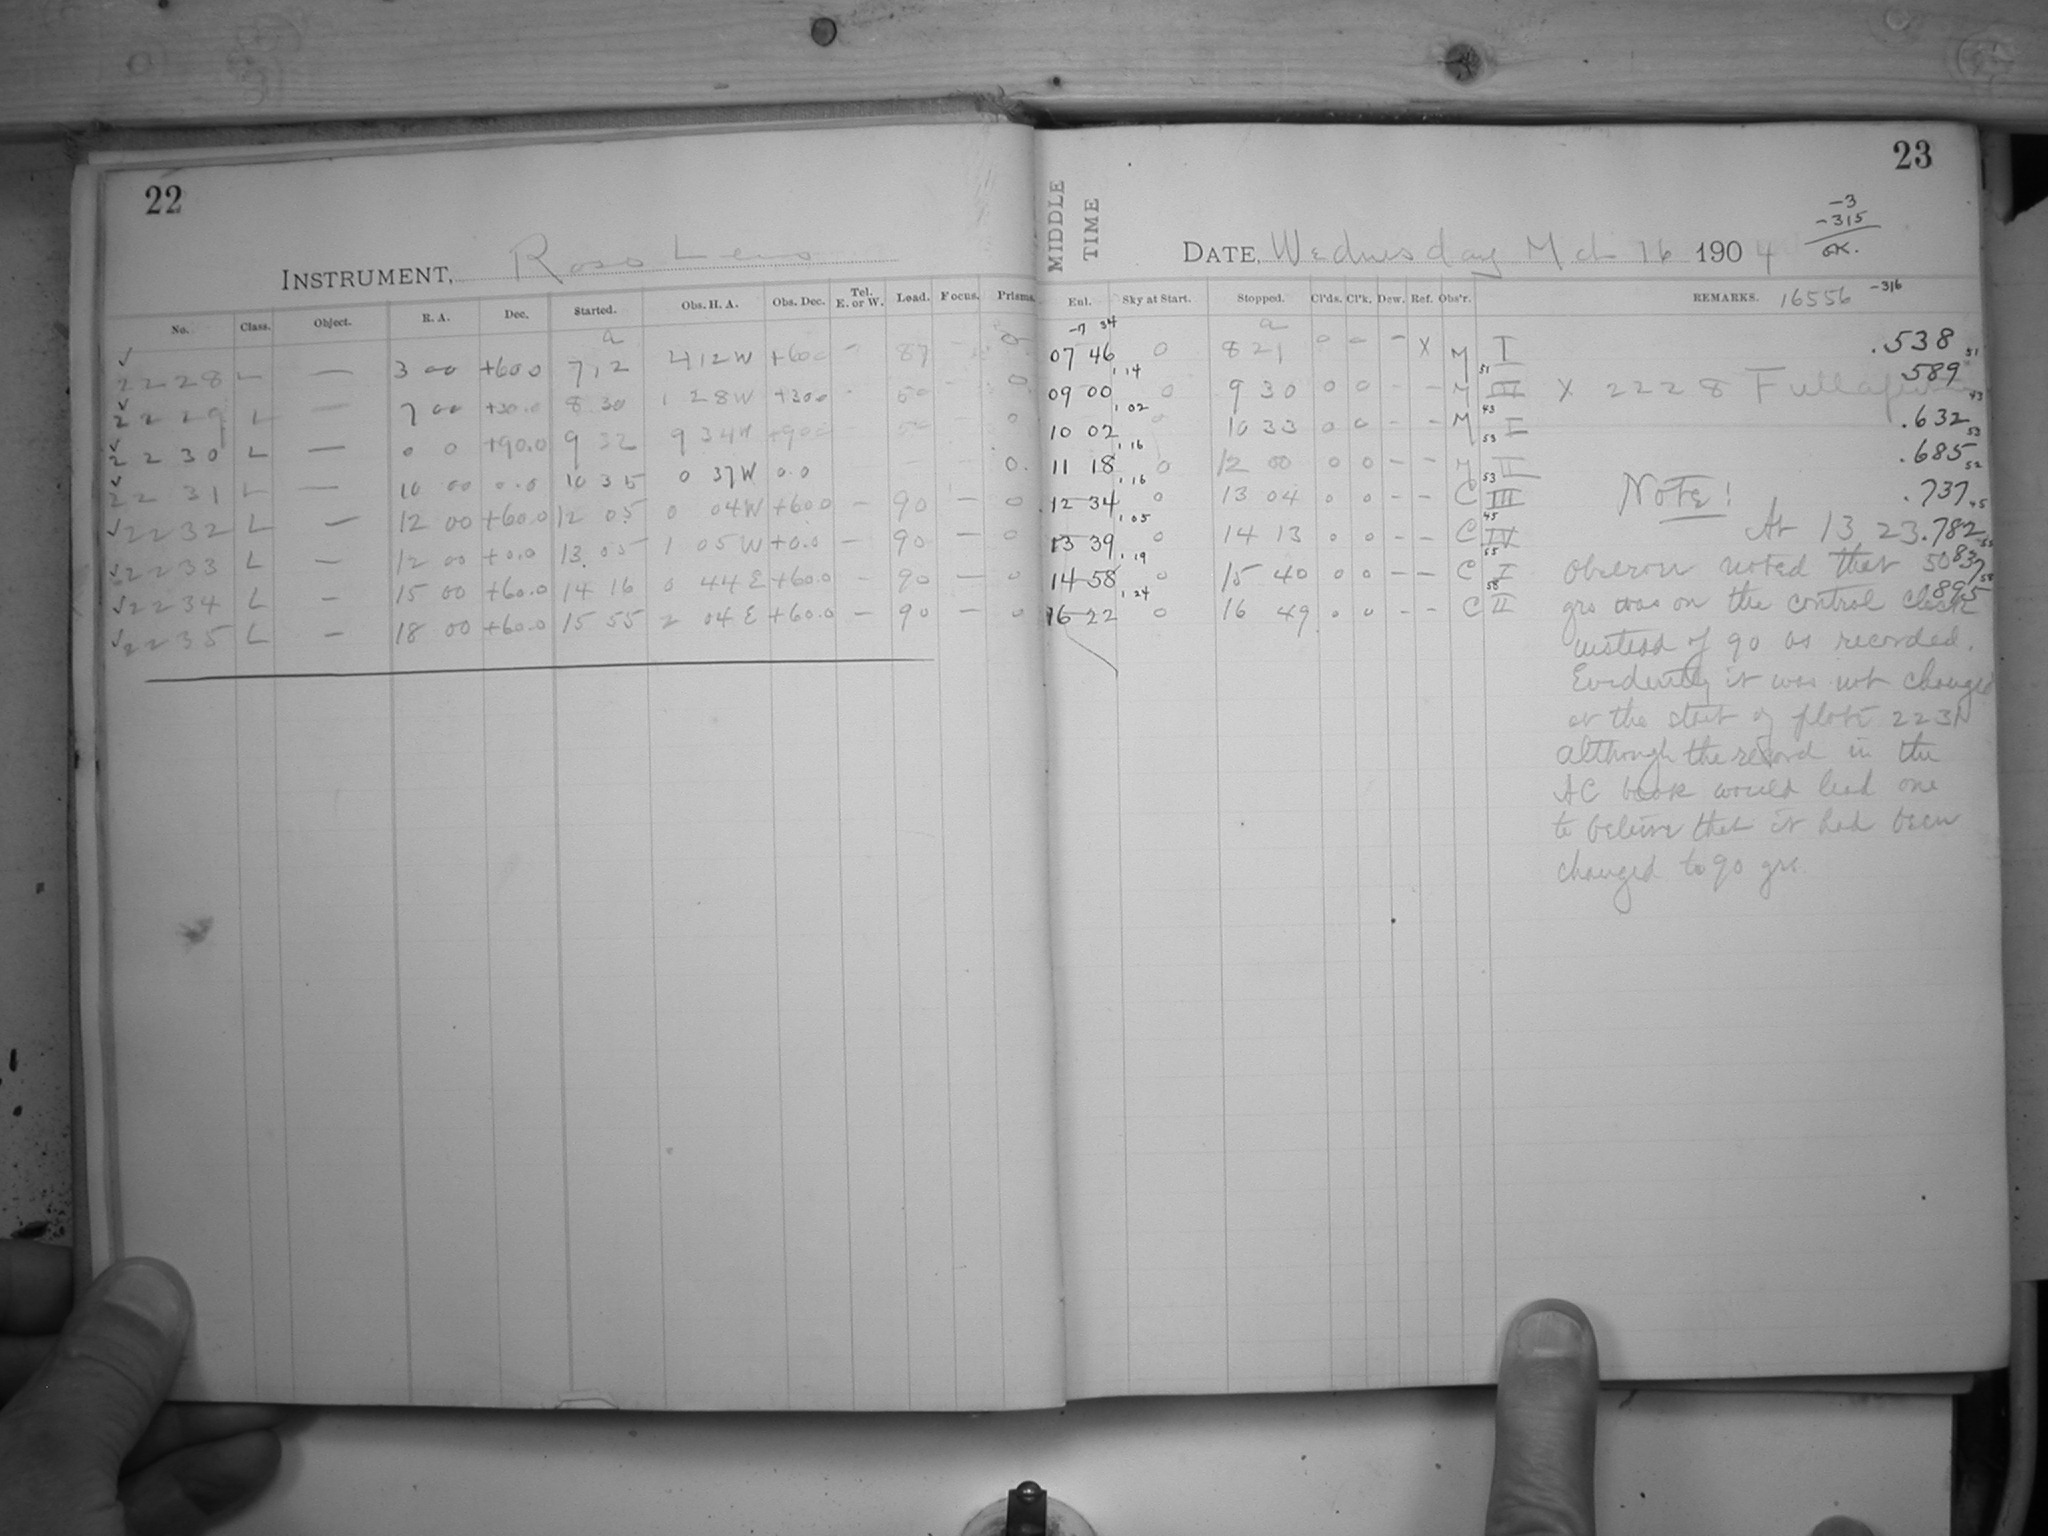 22
INSTRUMENT, Ross Lens
No. Class. Object. R. A. Dec. Started. Obs. H. A. Obs. Dec. Tel. E. or W. Load. Focus. Prisms.
a
2228 L — 3 00 +60.0 7 12 4 12 W +60.0 - 87 - 0
2229 L — 7 00 +30.0 8 30 1 28 W +30.0 - 50 - 0
2230 L — 0 0 +90.0 9 32 9 34 W +90.0 50 0
2231 L — 10 00 0.0 10 35 0 37 W 0.0 0
2232 L — 12 00 +60.0 12 05 0 04 W +60.0 - 90 - 0
2233 L — 12 00 +0.0 13 05 1 05 W +0.0 - 90 - 0
2234 L - 15 00 +60.0 14 16 0 44 E +60.0 - 90 - 0
2235 L - 18 00 +60.0 15 55 2 04 E +60.0 - 90 - 0
23
MIDDLE TIME
-3
-315
OK.
DATE, Wednesday Mch 16 1904
Enl. Sky at Start. Stopped. Cl'ds. Cl'k. Dew. Ref. Obs'r. REMARKS. 16556 -316
-7 34 a
07 46 0 8 21 0 0 - X M I .538 51
1 14 51 .589
09 00 0 9 30 0 0 - - M III X 2228 Full 43
1 02 43 .632
10 02 0 10 33 0 0 - - M I 53
1 16 53 .685
11 18 0 12 00 0 0 - - M II 52
1 16 53 Note! .737
12 34 0 13 04 0 0 - - C III 45
1 05 45 At 13 23 .782
13 39 0 14 13 0 0 - - C IV 55
1 19 55 oberon noted that 50 837
14 58 0 15 40 0 0 - - C I 58
1 24 58 grs was on the control clock 895
16 22 0 16 49 0 0 - - C II
instead of 90 as recorded.
Evidently it was not changed
at the start of plate 2231
although the record in the
AC book would lead one
to believe that it had been
changed to 90 grs